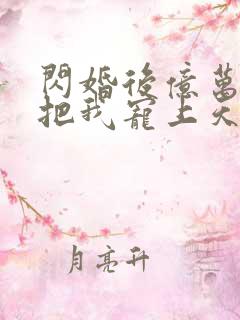 閃婚後億萬
把我寵上天
月亮升